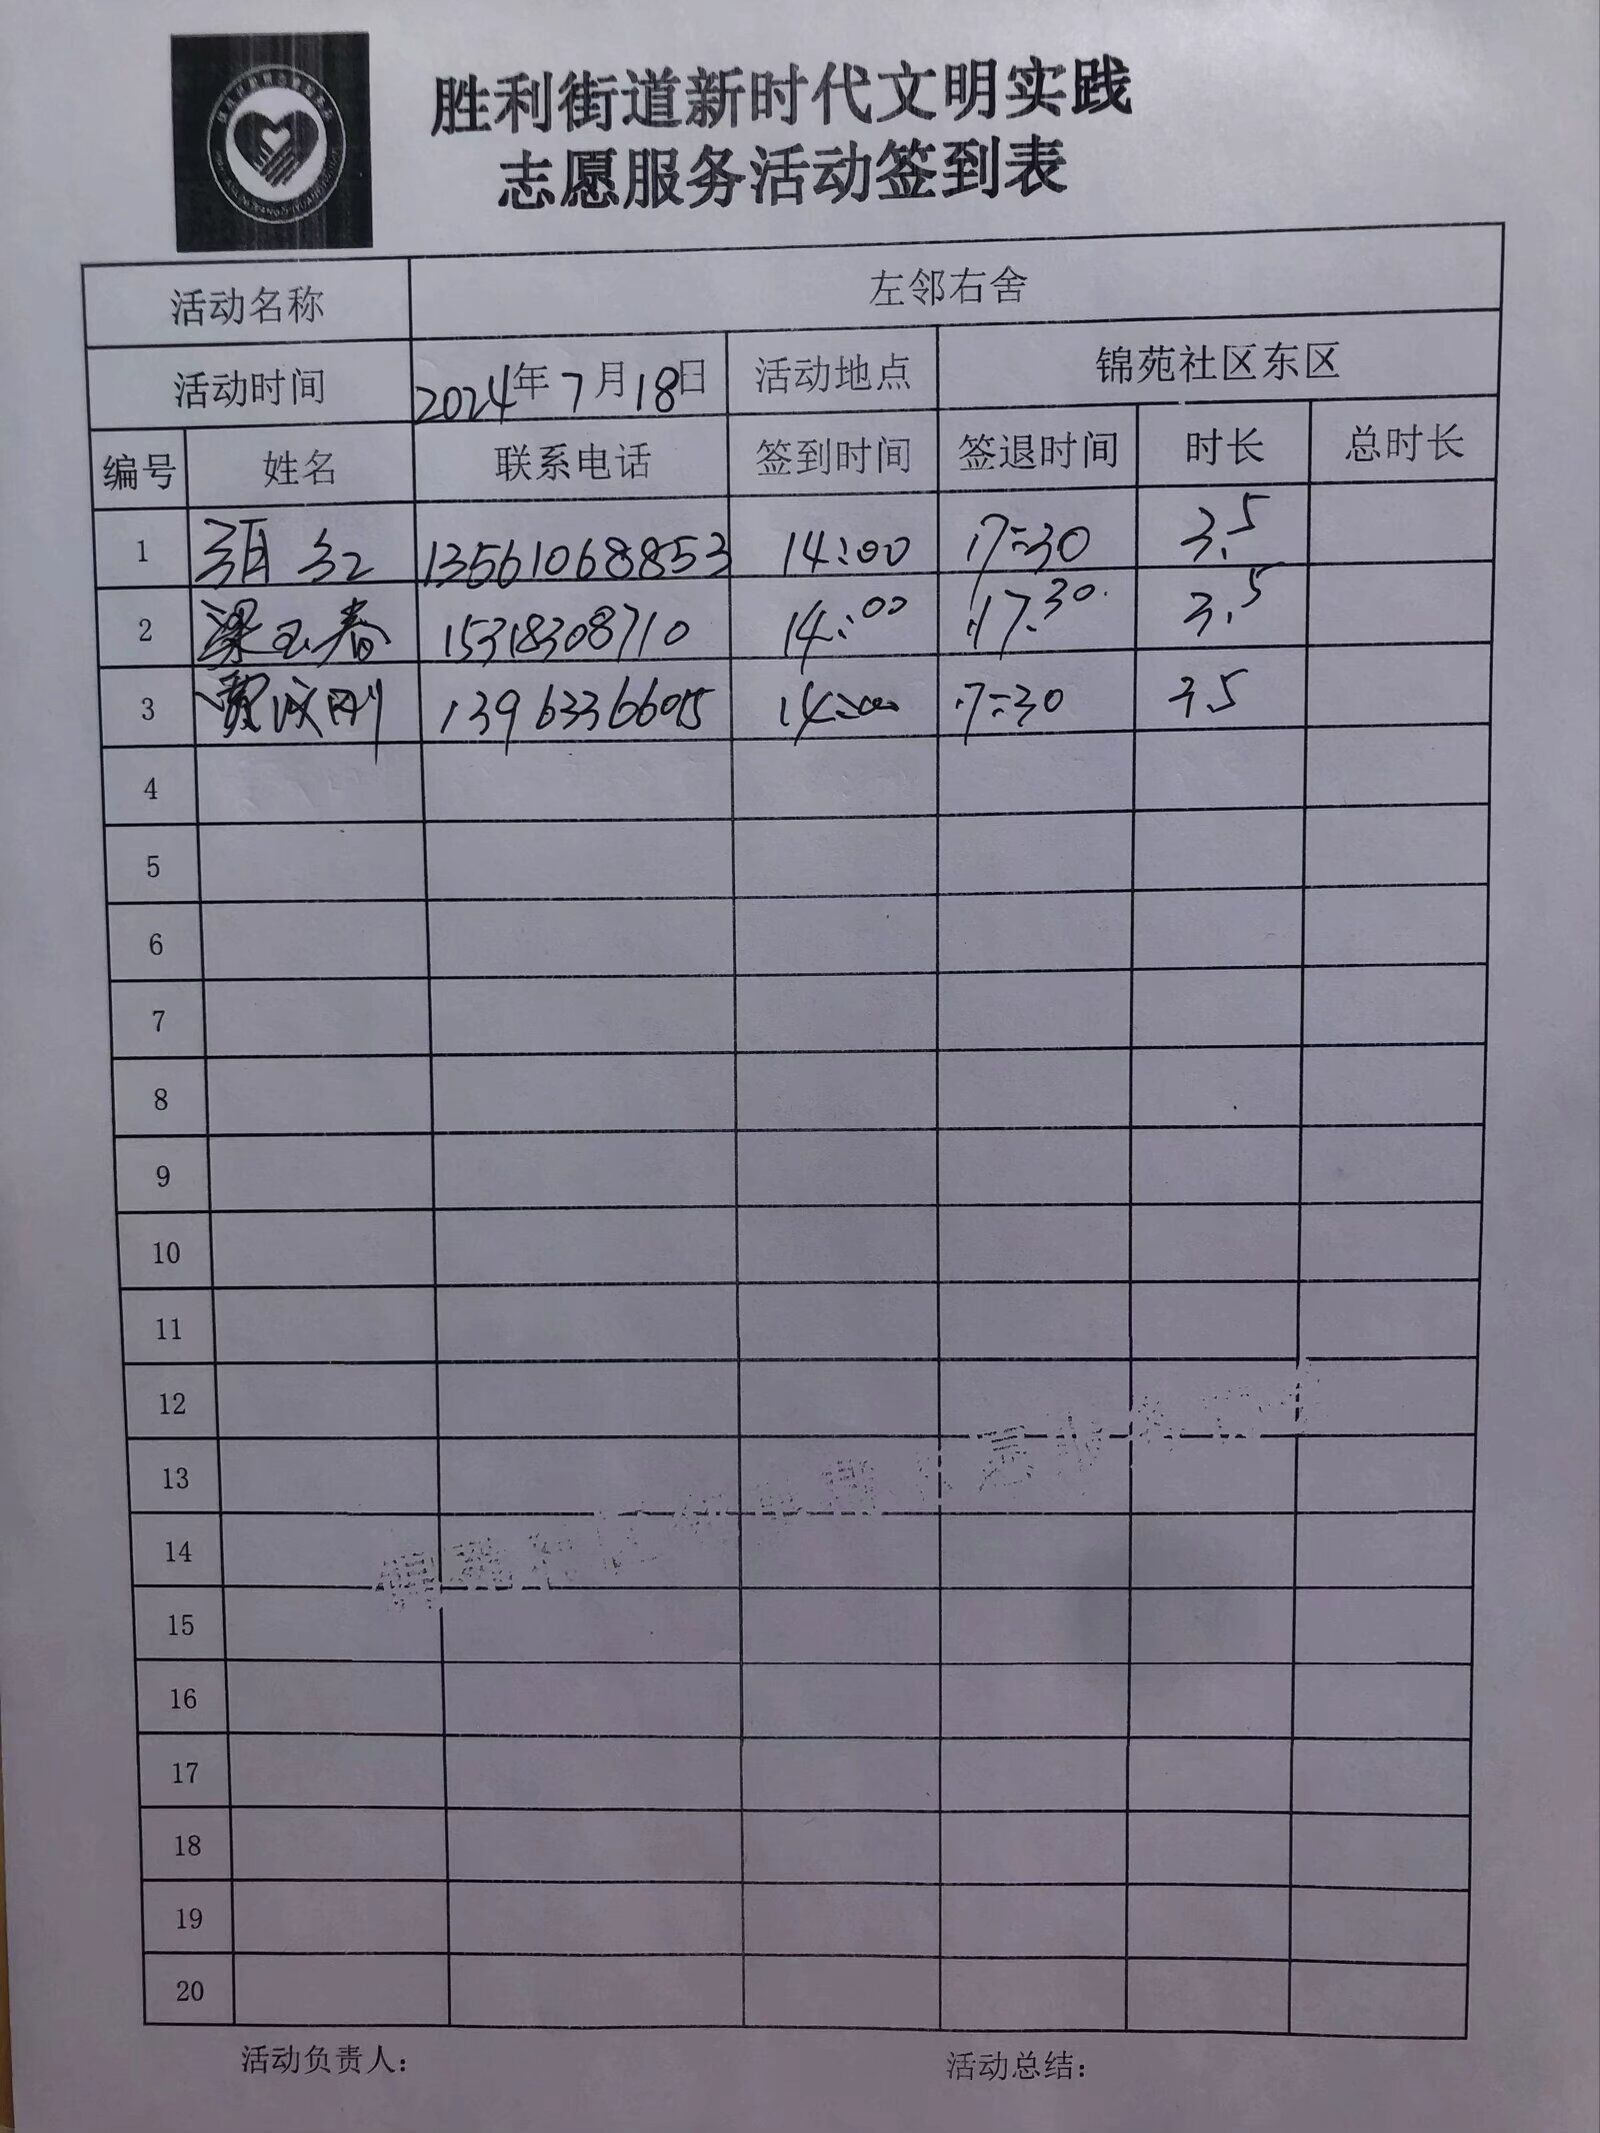 胜利街道新时代文明实践
志愿服务活动签到表
活动名称 左邻右舍
活动时间 2024年7月18日 活动地点 锦苑社区东区
编号 姓名 联系电话 签到时间 签退时间 时长 总时长
1 13561068853 14:00 17:30 3.5
2 梁玉春 15318308710 14:00 17:30 3.5
3 贾汶刚 13963366015 14:00 17:30 3.5
4
5
6
7
8
9
10
11
12
13
14
15
16
17
18
19
20
活动负责人： 活动总结：